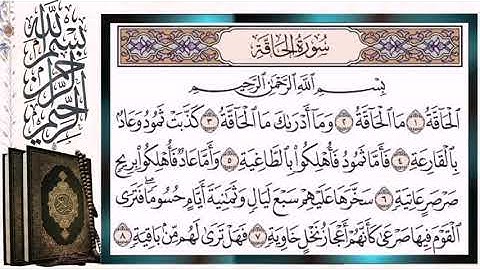 بسم الله الرحمن الرحيم
سُورَةُ الْحَاقَّةِ
بِسْمِ اللَّهِ الرَّحْمَٰنِ الرَّحِيمِ
الْحَاقَّةُ ١ مَا الْحَاقَّةُ ٢ وَمَا أَدْرَىٰكَ مَا الْحَاقَّةُ ٣ كَذَّبَتْ ثَمُودُ وَعَادٌ
بِالْقَارِعَةِ ٤ فَأَمَّا ثَمُودُ فَأُهْلِكُوا بِالطَّاغِيَةِ ٥ وَأَمَّا عَادٌ فَأُهْلِكُوا بِرِيحٍ
صَرْصَرٍ عَاتِيَةٍ ٦ سَخَّرَهَا عَلَيْهِمْ سَبْعَ لَيَالٍ وَثَمَٰنِيَةَ أَيَّامٍ حُسُومًا ۖ فَتَرَى
الْقَوْمَ فِيهَا صَرْعَىٰ كَأَنَّهُمْ أَعْجَازُ نَخْلٍ خَاوِيَةٍ ٧ فَهَلْ تَرَىٰ لَهُم مِّن بَاقِيَةٍ ٨